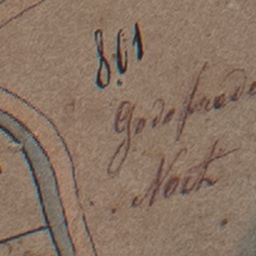 801
Godefrood
Noth